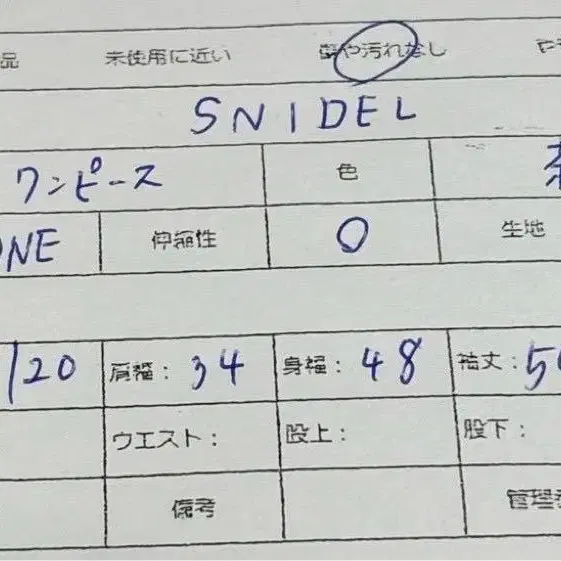 品 未使用に近い 傷や汚れなし
SNIDEL
ワンピース 色
ONE 伸縮性 ○ 生地
120 肩幅: 34 身幅: 48 袖丈: 5
ウエスト: 股上: 股下:
備考 管理